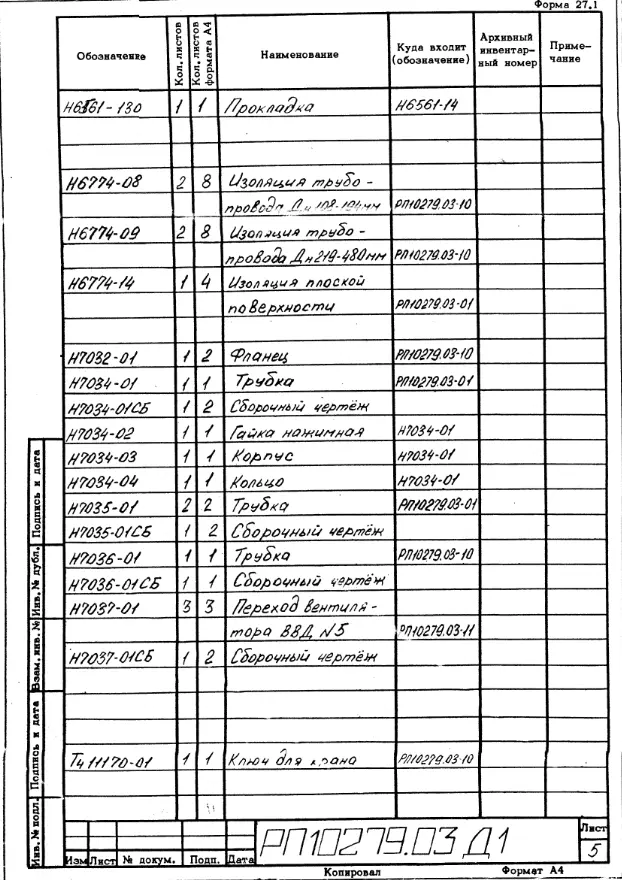 Форма 27.1
Обозначение Кол. листов Кол. листов формата А4 Наименование Куда входит (обозначение) Архивный инвентар- ный номер Приме- чание
Н6561-130 1 1 Прокладка Н6561-14
Н6774-08 2 8 Изоляция трубо -
провода Дн 108-194мм РП10279.03-10
Н6774-09 2 8 Изоляция трубо -
провода Дн219-480мм РП10279.03-10
Н6774-14 1 4 Изоляция плоской
поверхности РП10279.03-01
Н7032-01 1 2 Фланец РП10279.03-10
Н7034-01 1 1 Трубка РП10279.03-01
Н7034-01СБ 1 2 Сборочный чертёж
Н7034-02 1 1 Гайка нажимная Н7034-01
Н7034-03 1 1 Корпус Н7034-01
Н7034-04 1 1 Кольцо Н7034-01
Н7035-01 2 2 Трубка РП10279.03-01
Н7035-01СБ 1 2 Сборочный чертёж
Н7036-01 1 1 Трубка РП10279.03-10
Н7036-01СБ 1 1 Сборочный чертёж
Н7037-01 3 3 Переход вентиля -
тора ВВД №5 РП10279.03-11
Н7037-01СБ 1 2 Сборочный чертёж
Тч 11170-01 1 1 Ключ для крана РП10279.03-10
Подпись и дата
Инв. № дубл.
Взам. инв. №
Подпись и дата
Инв. № подл.
Изм Лист № докум. Подп. Дата
РП10279.03 Д1
Лист
5
Копировал Формат А4